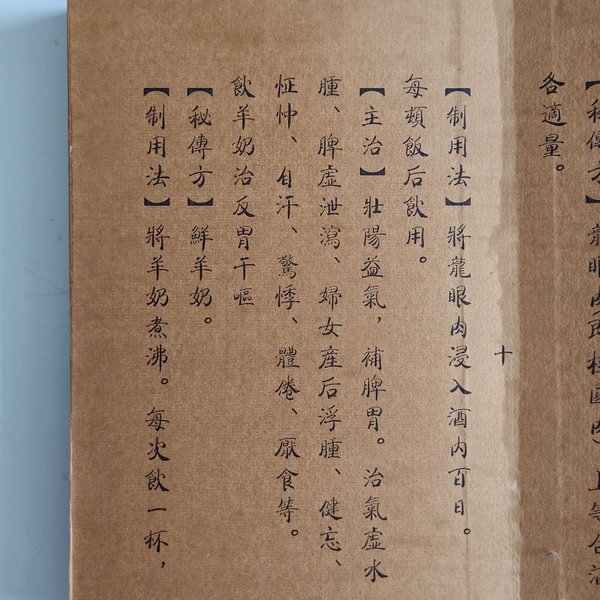 【秘傳方】龍眼肉（即桂圓肉）上等白酒
各適量。
十
【制用法】將龍眼肉浸入酒内百日。
每頓飯后飲用。
【主治】壯陽益氣，補脾胃。治氣虛水
腫、脾虛泄瀉、婦女産后浮腫、健忘、
怔忡、自汗、驚悸、體倦、厭食等。
飲羊奶治反胃干嘔
【秘傳方】鮮羊奶。
【制用法】將羊奶煮沸。每次飲一杯，